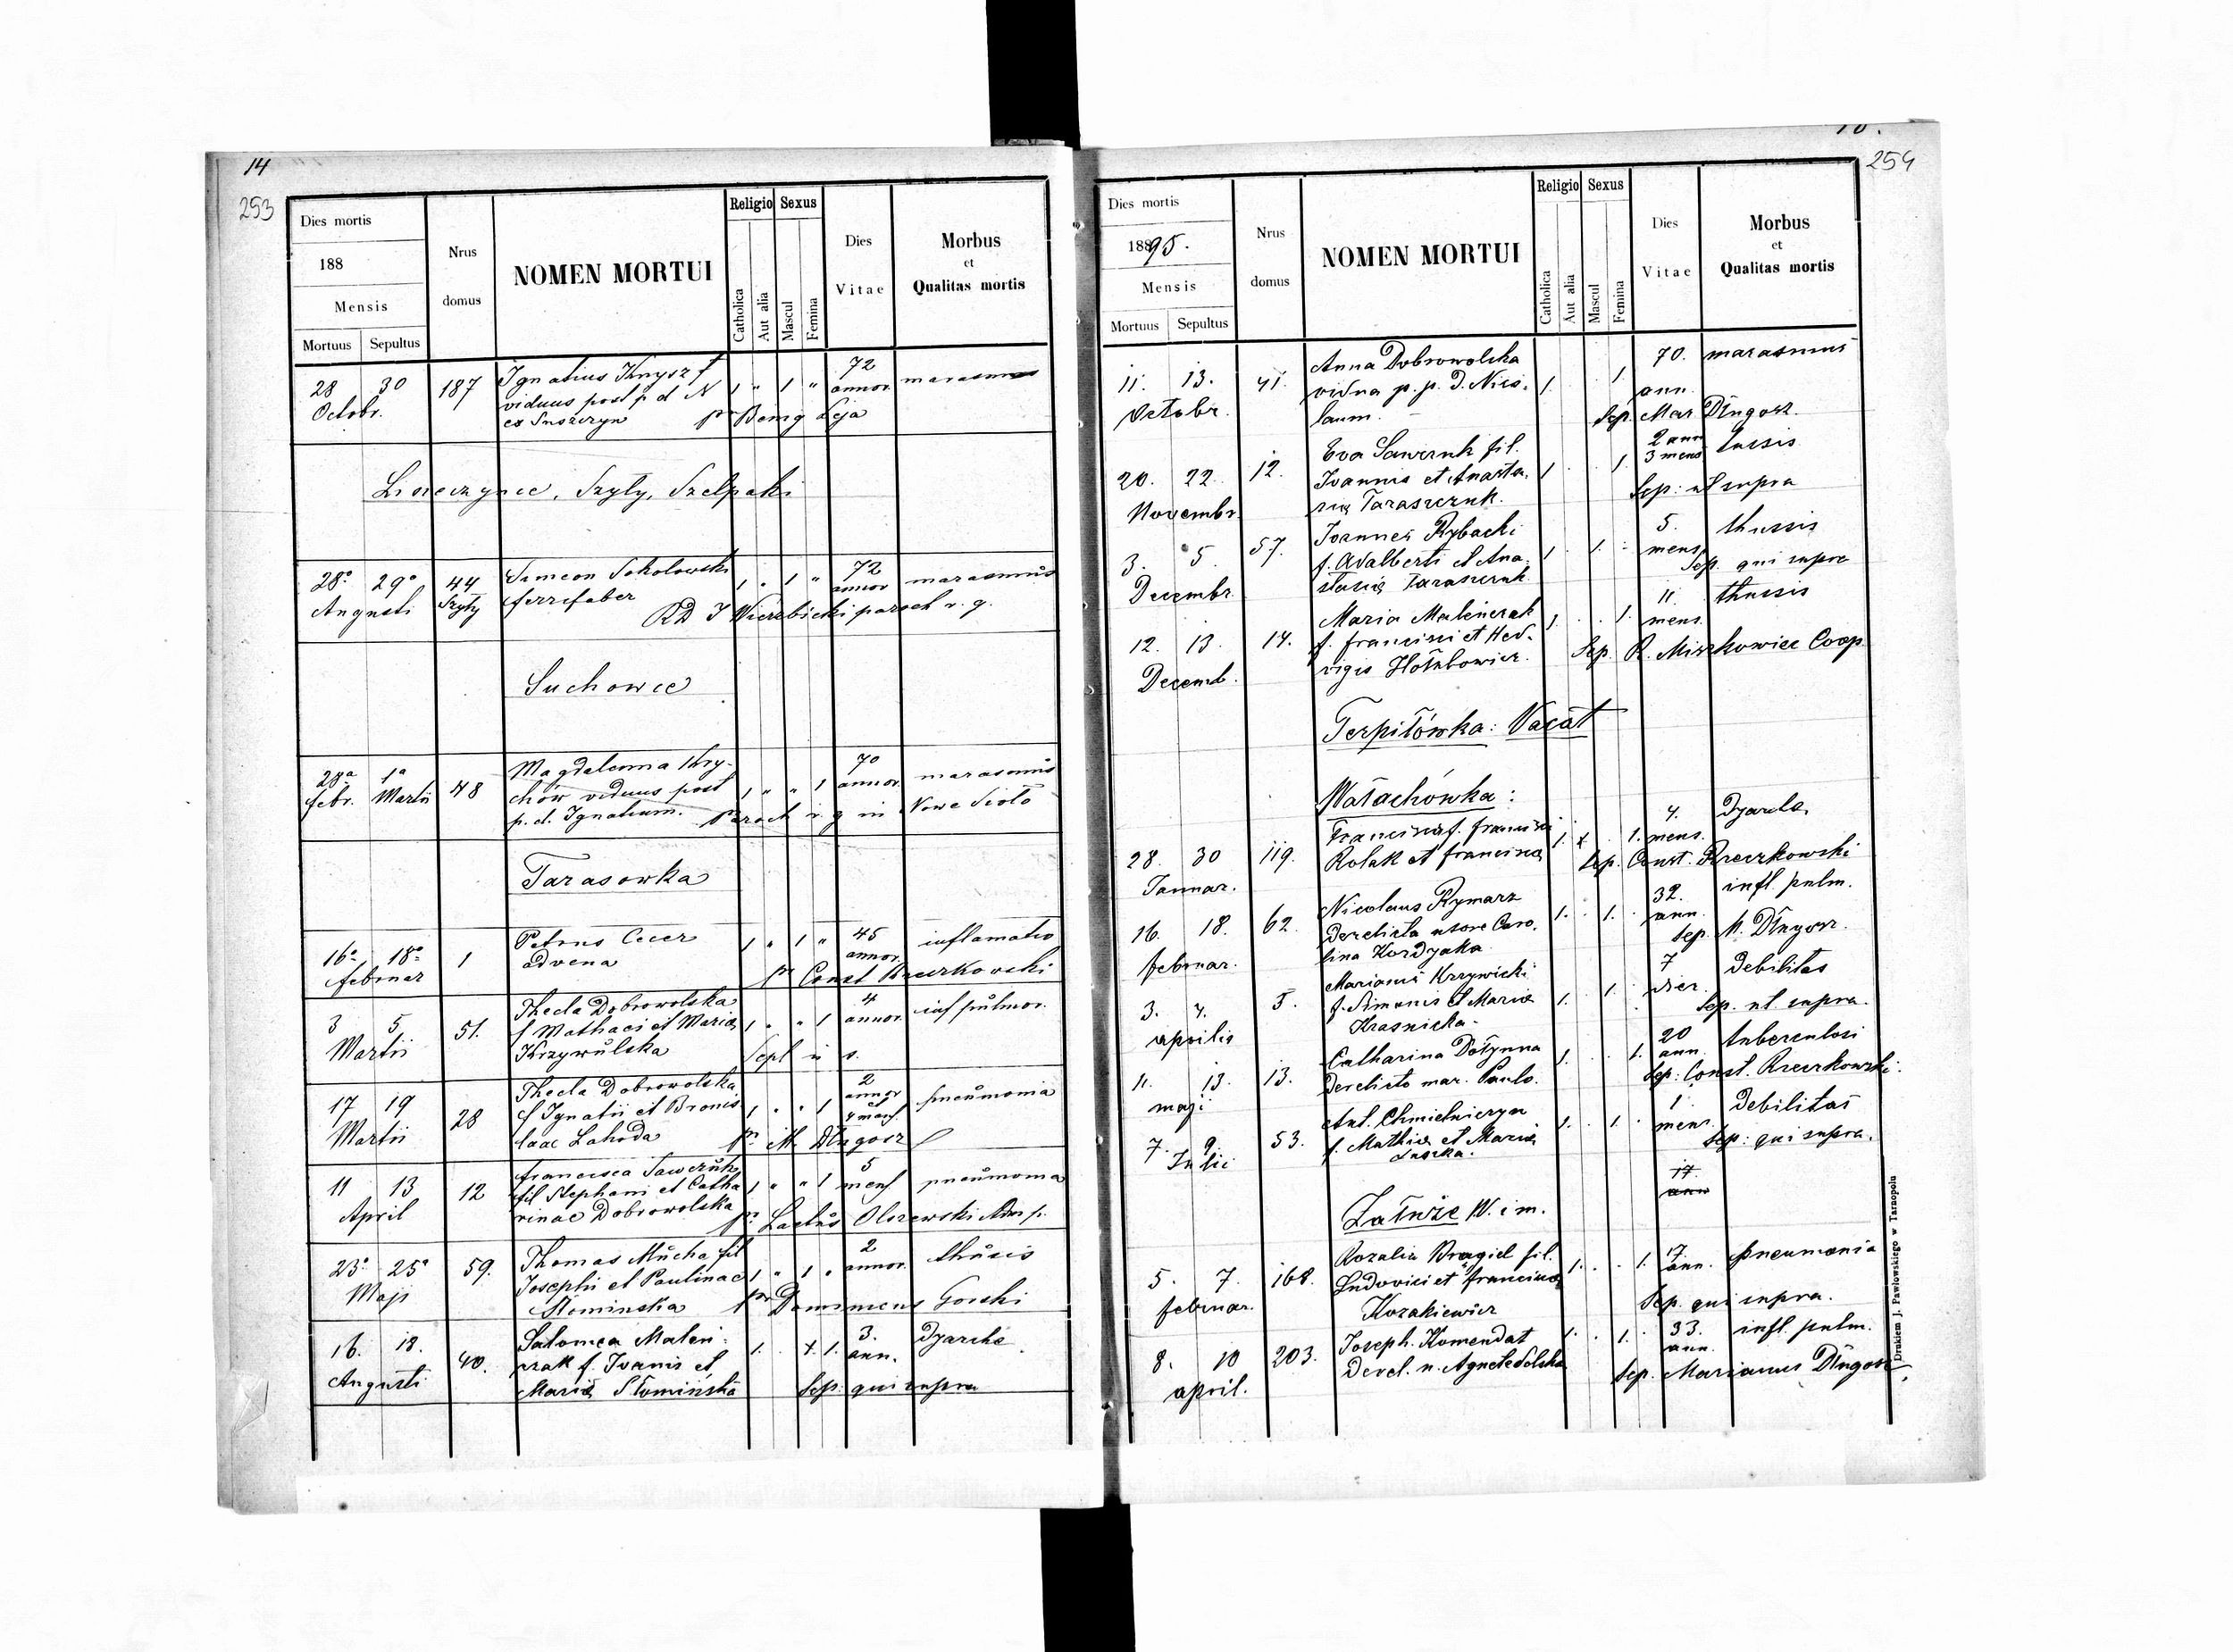 14
253
Dies mortis
188
Mensis
Mortuus Sepultus
Nrus
domus
NOMEN MORTUI
Religio
Catholica
Aut alia
Sexus
Mascul
Femina
Dies
Vitae
Morbus
et
Qualitas mortis
28 30 187 Ignatius Knysz f 1 " 1 " 72 marasmus
Octobr. viduus post p d N annor
ex Suszczyn pr Leja
Szyly, Szelpaki
28° 29° 44 Simeon Sokolowski 1 " 1 " 72 marasmus
Augusti Szyły ferrifaber annor
RD J Wierzbicki paroch r. g.
Suchowce
28a 1a 48 Magdalenna Kry- 1 " " 1 70 marasmus
febr. Martii chów viduus post annor
p. d. Ignatium. Paroch r. g in Nowe Sioło
Tarasowka
16a 18a 1 Petrus Cecer 1 " 1 " 45 inflamatio
februar advena annor
pr Const Rzeczkowski
3 5 51. Thecla Dobrowolska 1 " " 1 4 inf pulmon.
Martii f Mathaei et Maria annor
Krzywulska Sept u s.
17 19 28 Thecla Dobrowolska 1 " " 1 2 pneumonia
Martii f Ignatii et Bronis annor et
laae Lahoda 4 mens
pr M Dlugosz
11 13 12 Francisca Sawczuk 1 " " 1 5 pneumonia
April fil Stephani et Catha mens
rinae Dobrowolska pr Olszewski Adm p.
23° 25° 59. Thomas Mucha fil 1 " 1 " 2 thusis
Maji Josephi et Paulinae annor
Slominska pr Gorski
16. 18. 40. Salomea Maleń- 1. 1. 3. Dyarche
Augusti czak f. Joanis et ann.
Maria Słomińska Sep. qui supra
254
Dies mortis
1895.
Mensis
Mortuus Sepultus
Nrus
domus
NOMEN MORTUI
Religio
Catholica
Aut alia
Sexus
Mascul
Femina
Dies
Vitae
Morbus
et
Qualitas mortis
11. 13. 41. Anna Dobrowolska 1. 1. 70. marasmus
Octobr. vidua p. p. D. Nico- ann.
laum. Sep. Mar Długosz.
20. 22. 12. Eva Sawczuk fil. 1. 1. 2 ann tussis
Novembr. Joannis et Anasta- 3 mens
sia Taraszczuk. Sep: ut supra
3. 5 57. Joannes Rybacki 1. 1. 5. thussis
Decembr. f. Adalberti et Ana- mens.
stasia Taraszczuk. Sep. qui supra
12. 13. 14. Maria Maleńczak 1. 1. 11. thussis
Decemb. f. Francisci et Hed- mens.
vigis Hołubowicz. Sep. R. Miszkowicz Coop.
Terpiłówka: Vacat
Wałachówka:
28. 30 119. Francisca f. Francisci 1. 1. 4. Dyarche
Januar. Rolak et Francisca mens.
Sep. Const. Rzeczkowski
16. 18. 62. Nicolaus Rymarz 1. 1. 32. infl. pulm.
februar. derelicta uxore Caro- ann.
lina Kordyaka Sep. M. Długosz.
3. 4. 5. Marianus Krzywicki 1. 1. 7 Debilitas
aprilis f. Simonis et Maria dier.
Krasnicka. Sep. ut supra.
11. 13. 13. Catharina Dołynna 1. 1. 20 tuberculosi
maji derelicto mar. Paulo. ann
Sep: Const. Rzeczkowski.
7. 9. 53. Ant. Chmielniczyn 1. 1. 1 Debilitas
Julii f. Mathia et Maria mens.
Luszka. Sep: qui supra.
17.
ann
Załuże W. i m.
5. 7. 168. Rozalia Bragiel fil. 1. 1. 17. pneumonia
februar. Ludovici et Francisca ann.
Kozakiewicz Sep. qui supra.
8. 10 203. Joseph. Komendat 1. 1. 33. infl. pulm.
april. Derel. u. Agnete Solska ann.
Sep. Marianus Długosz
Drukiem J. Pawłowskiego w Tarnopolu